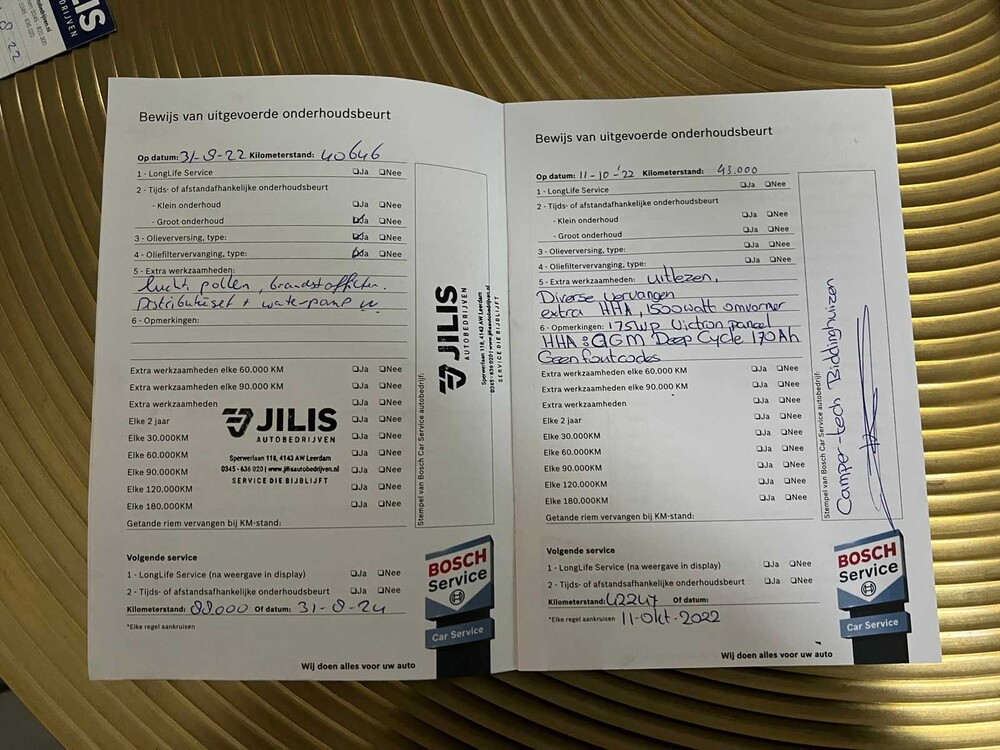 JILIS
Bewijs van uitgevoerde onderhoudsbeurt
Op datum: 31-8-22 Kilometerstand: 40646
1 - LongLife Service Ja Nee
2 - Tijds- of afstandafhankelijke onderhoudsbeurt
- Klein onderhoud Ja Nee
- Groot onderhoud Ja Nee
3 - Olieverversing, type: Ja Nee
4 - Oliefiltervervanging, type: Ja Nee
5 - Extra werkzaamheden:
lucht, pollen, brandstoffilter.
Distributieset + waterpomp
6 - Opmerkingen:
Extra werkzaamheden elke 60.000 KM Ja Nee
Extra werkzaamheden elke 90.000 KM Ja Nee
Extra werkzaamheden Ja Nee
Elke 2 jaar Ja Nee
Elke 30.000KM Ja Nee
Elke 60.000KM Ja Nee
Elke 90.000KM Ja Nee
Elke 120.000KM Ja Nee
Elke 180.000KM Ja Nee
Getande riem vervangen bij KM-stand:
JILIS
AUTOBEDRIJVEN
Sperwerlaan 118, 4143 AW Leerdam
0345 - 636 020 | www.jilisautobedrijven.nl
SERVICE DIE BIJBLIJFT
Stempel van Bosch Car Service autobedrijf:
JILIS
AUTOBEDRIJVEN
Sperwerlaan 118, 4143 AW Leerdam
0345 - 636 020 | www.jilisautobedrijven.nl
SERVICE DIE BIJBLIJFT
Volgende service
1 - LongLife Service (na weergave in display) Ja Nee
2 - Tijds- of afstandsafhankelijke onderhoudsbeurt Ja Nee
Kilometerstand: 88000 Of datum: 31-8-24
*Elke regel aankruisen
BOSCH
Service
Car Service
Wij doen alles voor uw auto
Bewijs van uitgevoerde onderhoudsbeurt
Op datum: 11-10-'22 Kilometerstand: 43.000
1 - LongLife Service Ja Nee
2 - Tijds- of afstandafhankelijke onderhoudsbeurt
- Klein onderhoud Ja Nee
- Groot onderhoud Ja Nee
3 - Olieverversing, type: Ja Nee
4 - Oliefiltervervanging, type: Ja Nee
5 - Extra werkzaamheden: uitlezen,
Diverse vervangen
extra HHA, 1500watt omvormer
6 - Opmerkingen: 175Wp Victron paneel
HHA : AGM Deep Cycle 170Ah
Geen foutcodes
Extra werkzaamheden elke 60.000 KM Ja Nee
Extra werkzaamheden elke 90.000 KM Ja Nee
Extra werkzaamheden Ja Nee
Elke 2 jaar Ja Nee
Elke 30.000KM Ja Nee
Elke 60.000KM Ja Nee
Elke 90.000KM Ja Nee
Elke 120.000KM Ja Nee
Elke 180.000KM Ja Nee
Getande riem vervangen bij KM-stand:
Stempel van Bosch Car Service autobedrijf:
Camper-tech Biddinghuizen
Volgende service
1 - LongLife Service (na weergave in display) Ja Nee
2 - Tijds- of afstandsafhankelijke onderhoudsbeurt Ja Nee
Kilometerstand: 42247 Of datum:
*Elke regel aankruisen 11-okt-2022
BOSCH
Service
Car Service
Wij doen alles voor uw auto